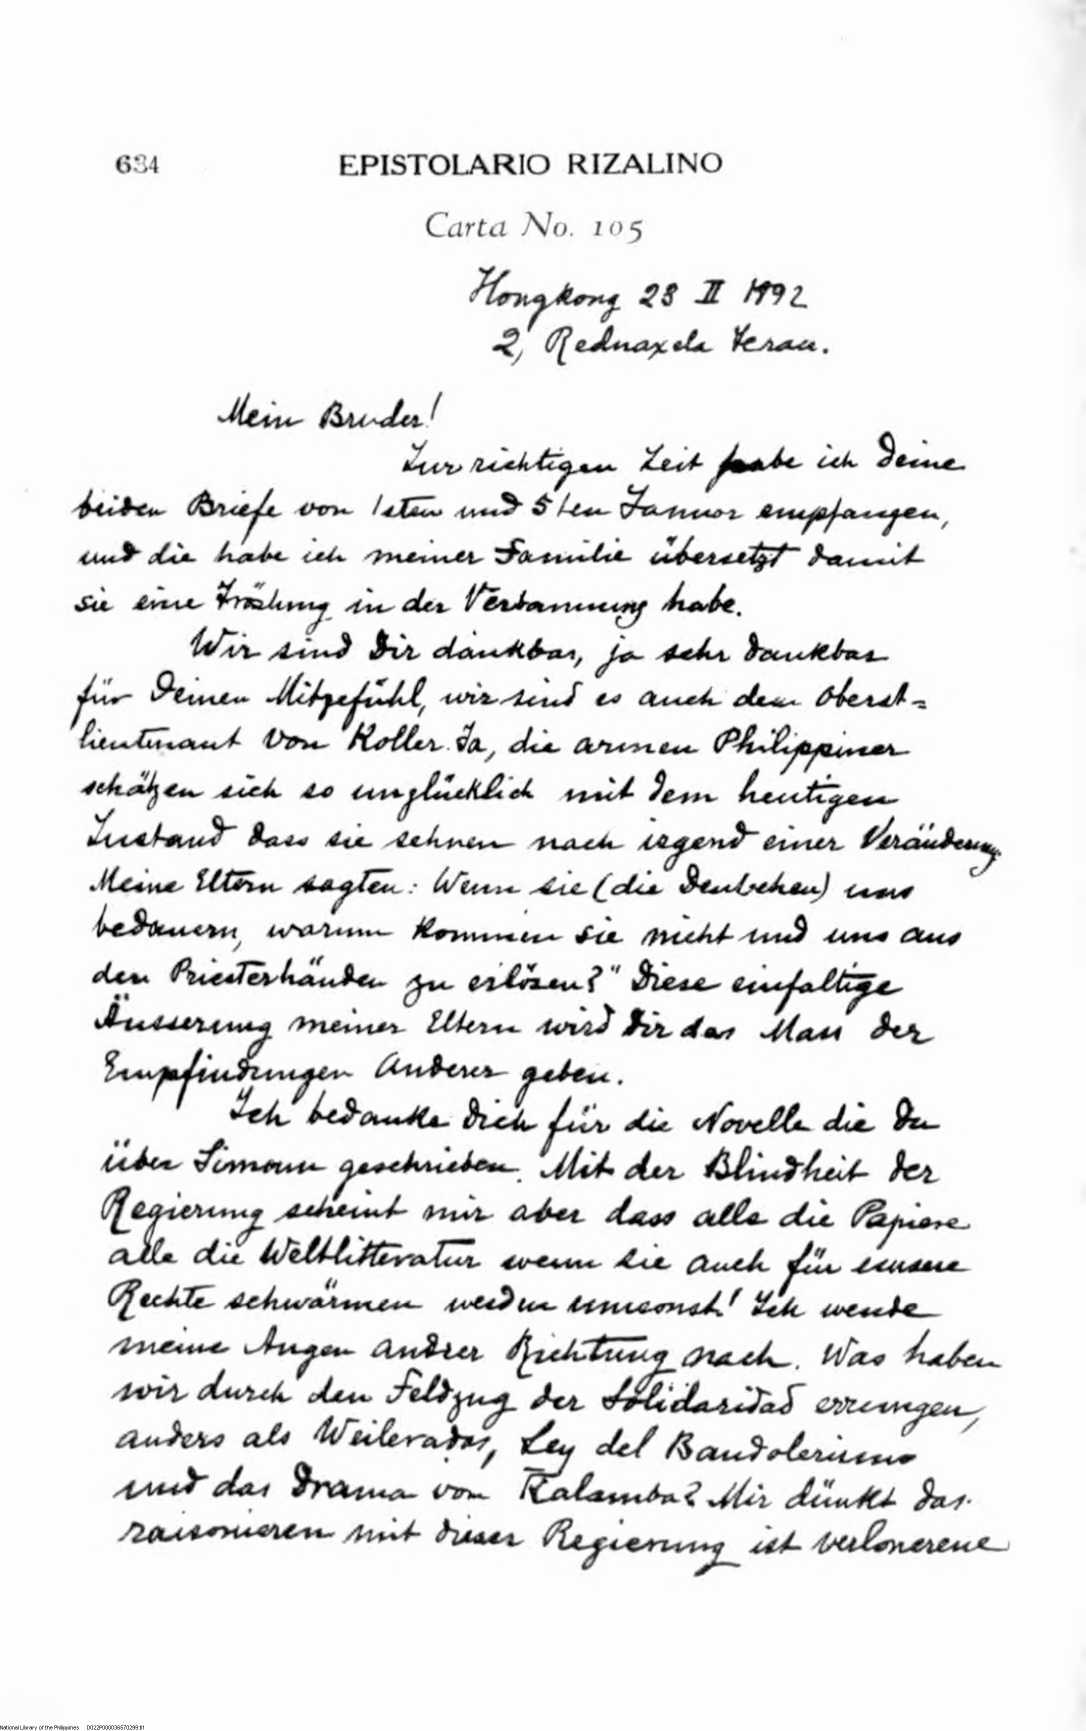 634
EPISTOLARIO RIZALINO
Carta No. 105
Hongkong 23 II 1892
2, Rednaxela Terau.
Mein Bruder!
Zur richtigen Zeit habe ich Deine
beiden Briefe von 1sten und 5ten Januar empfangen,
und die habe ich meiner Familie übersetzt damit
sie eine Tröstung in der Verbannung habe.
Wir sind Dir dankbar, ja sehr dankbar
für Deinen Mitgefühl, wir sind es auch dem Oberst-
lieutenant von Koller. Ja, die armen Philippiner
schätzen sich so unglücklich mit dem heutigen
Zustand dass sie sehnen nach irgend einer Veränderung.
Meine Eltern sagten: Wenn sie (die Deutschen) uns
bedauern, warum kommen sie nicht und uns aus
den Priesterhänden zu erlösen?" Diese einfaltige
Äusserung meiner Eltern wird Dir das Mass der
Empfindungen Anderer geben.
Ich bedanke Dich für die Novelle die Du
über Simoun geschrieben. Mit der Blindheit der
Regierung scheint mir aber dass alle die Papiere
alle die Weltlitteratur wenn sie auch für unsere
Rechte schwärmen werden umsonst! Ich wende
meine Augen andrer Richtung nach. Was haben
wir durch den Feldzug der Solidaridad errungen,
anders als Weileradas, Ley del Bandolerismo
und das Drama von Kalamba? Mir dünkt das
raisonieren mit dieser Regierung ist verlonerene
National Library of the Philippines